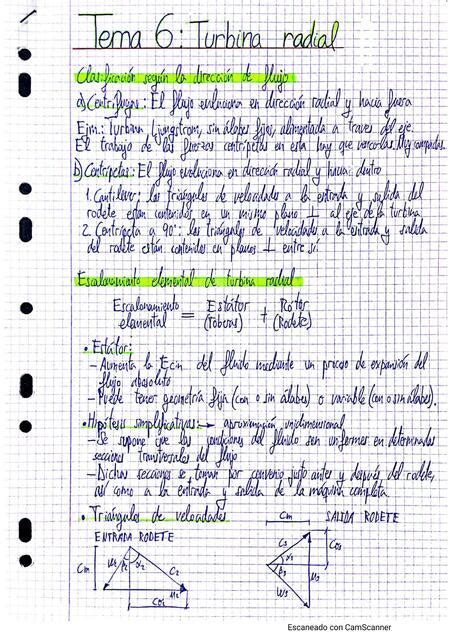 Tema 6: Turbina radial
Clasificación según la dirección de flujo
a) Centrífugas: El flujo evoluciona en dirección radial y hacia fuera
Ejm.: Turbina Ljungstrom, sin álabes fijos, alimentada a traves del eje.
El trabajo de las fuerzas centrípetas en esta hay que vencerlas. Muy compactas.
b) Centrípetas: El flujo evoluciona en dirección radial y hacia dentro
1. Cantilever: los triángulos de velocidades a la entrada y salida del
rodete estan contenidos en un mismo plano ⊥ al eje de la turbina
2. Centrípeta a 90°: los triángulos de velocidades a la entrada y salida
del rodete están contenidos en planos ⊥ entre sí.
Escalonamiento elemental de turbina radial
Escalonamiento elemental = Estátor (Toberas) + Rotor (Rodete)
• Estátor:
- Aumenta la Ecin del fluido mediante un proceso de expansión del
flujo absoluto
- Puede tener geometría fija (con o sin álabes) o variable (con o sin álabes).
• Hipótesis simplificativas: → aproximación unidimensional
- Se supone que las condiciones del fluido son uniformes en determinadas
secciones transversales del flujo
- Dichas secciones se toman por convenio justo antes y después del rodete,
así como a la entrada y salida de la máquina completa.
• Triángulos de velocidades
Cm
SALIDA RODETE
ENTRADA RODETE
C3
α3
Cθ3
β3
U3
W3
Cm
W2
β2
α2
C2
U2
Cθ2
Escaneado con CamScanner